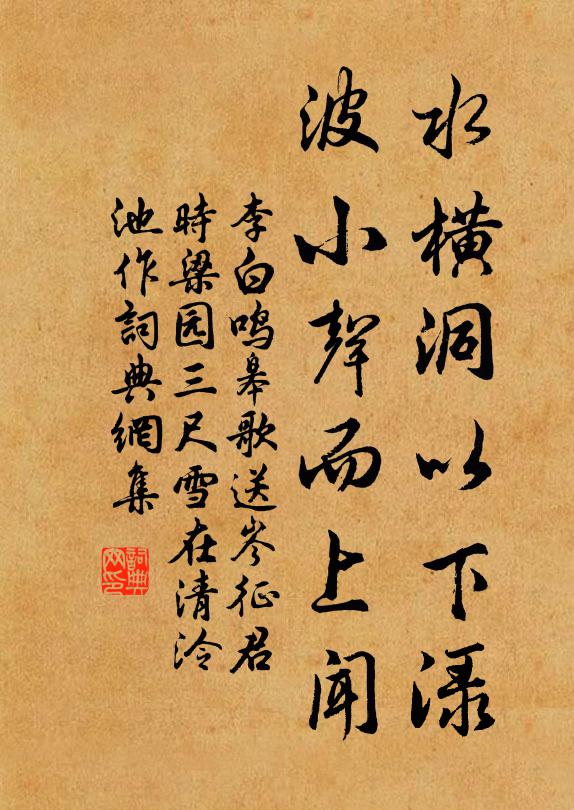 水橫洞以下淥
波小聲而上聞
李白鳴皋歌送岑征君
時梁园三尺雪在清泠
池作詞典網集
詞典网印